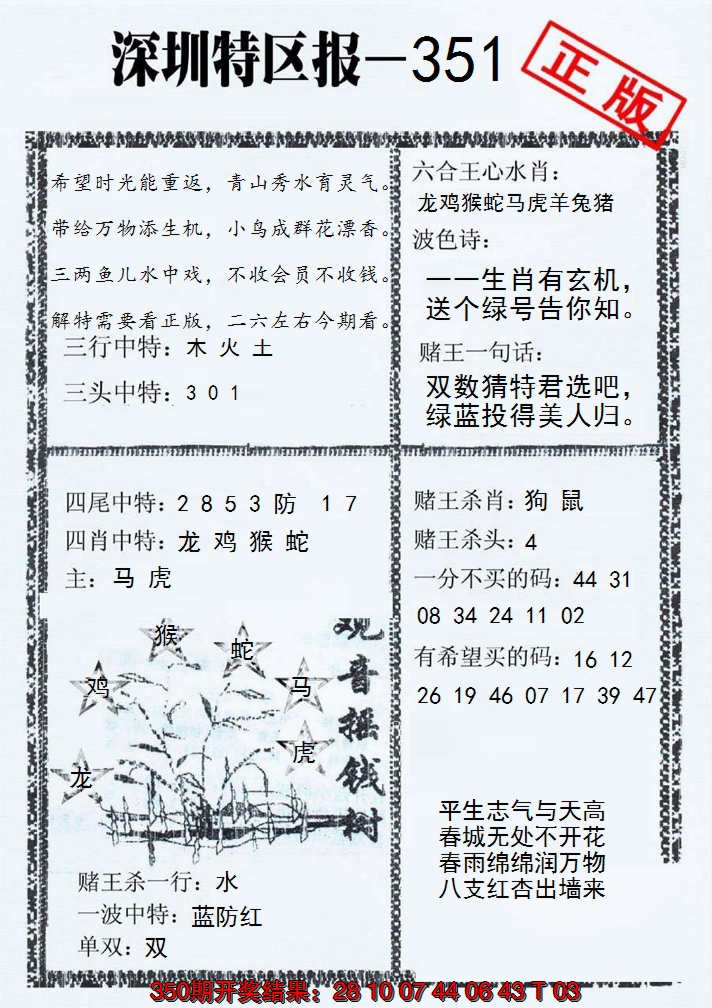 深圳特区报-351
正版
希望时光能重返，青山秀水育灵气。
带给万物添生机，小鸟成群花漂香。
三两鱼儿水中戏，不收会员不收钱。
解特需要看正版，二六左右今期看。
三行中特：木 火 土
三头中特：3 0 1
六合王心水肖：
龙鸡猴蛇马虎羊兔猪
波色诗：
一一生肖有玄机，
送个绿号告你知。
赌王一句话：
双数猜特君选吧，
绿蓝投得美人归。
四尾中特：2 8 5 3 防 1 7
四肖中特：龙 鸡 猴 蛇
主：马 虎
猴
蛇
鸡
马
虎
龙
观音摇钱树
赌王杀一行：水
一波中特：蓝防红
单双：双
赌王杀肖：狗 鼠
赌王杀头：4
一分不买的码：44 31
08 34 24 11 02
有希望买的码：16 12
26 19 46 07 17 39 47
平生志气与天高
春城无处不开花
春雨绵绵润万物
八支红杏出墙来
350期开奖结果：28 10 07 44 06 43 T 03